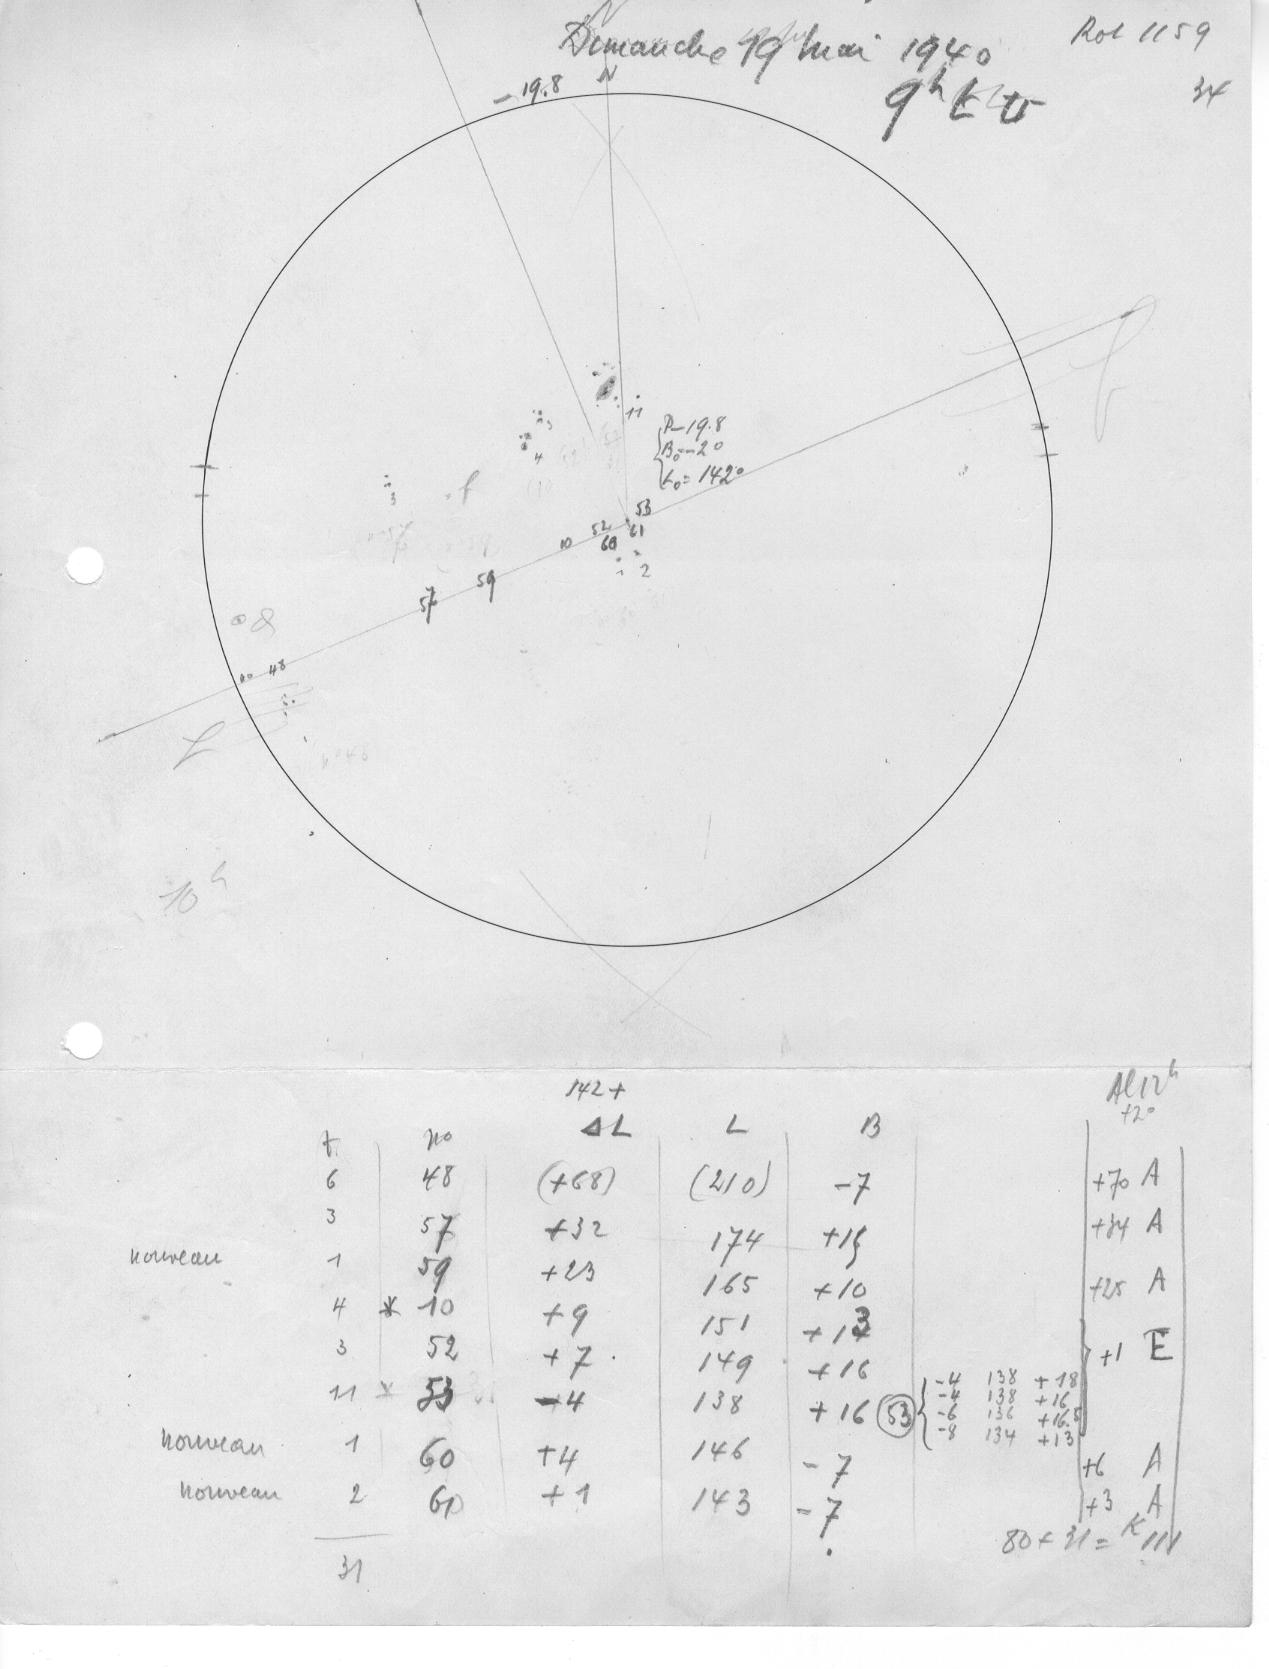 Dimanche 19 Mai 1940
Rot 1159
34
9h
N
-19.8
11
3
4
P-19.8
B0=-2°
L0=142°
3
53
52
61
10
60
1
2
59
57
8
no 48
no 48
10h
142+
t. no ΔL L B
6 48 (+68) (210) -7 +70 A
3 57 +32 174 +15 +34 A
nouveau 1 59 +23 165 +10 +25 A
4 * 10 +9 151 +13
3 52 +7 149 +16 +1 E
11 * 53 -4 138 +16 53
-4 138 +18
-4 138 +16
-6 136 +16.5
-8 134 +13
nouveau 1 60 +4 146 -7 +6 A
nouveau 2 61 +1 143 -7 +3 A
80+31= K 111
31
12h
+2°